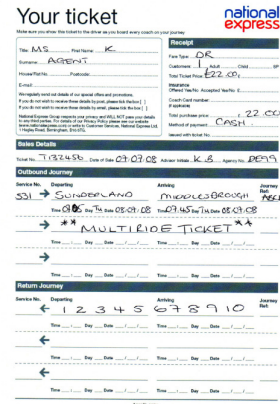 Your ticket
national express
Make sure you show this ticket to the driver as you board every coach on your journey
Title MS First Name K
Surname AGENT
House/Flat No. Postcode
E-mail
We regularly send out details of our special offers and promotions.
If you do not wish to receive these details by post, please tick the box [ ]
If you do not wish to receive these details by email, please tick the box [ ]
National Express Group respects your privacy and WILL NOT pass your details
to any third parties. For details of our Privacy Policy please see our website
1 Hagley Road, Birmingham, B16 8TG.
Receipt
Fare Type DR
Customers 1 Adult Child
Total Ticket Price £22.00
Insurance
Offered Yes/No Accepted Yes/No £
Coach Card number
(if applicable)
Total purchase price £ 22.00
Method of payment CASH
Issued with ticket No
Sales Details
Ticket No. 7132456 Date of Sale 07.07.08 Advisor Initials K.B Agency No.
Outbound Journey
Service No. Departing Arriving Journey Ref:
531 → SUNDERLAND MIDDLESBROUGH
Day Tu Date 08.07.08 Time 07.45 Day Tu Date 08.07.08
→ ** MULTIRIDE TICKET **
Time Day Date / / Time Day Date / /
→
Time Day Date / / Time Day Date / /
Return Journey
Service No. Departing Arriving Journey Ref:
← 1 2 3 4 5 6 7 8 9 10
Time Day Date / / Time Day Date / /
←
Time Day Date / / Time Day Date / /
←
Time Day Date / / Time Day Date / /